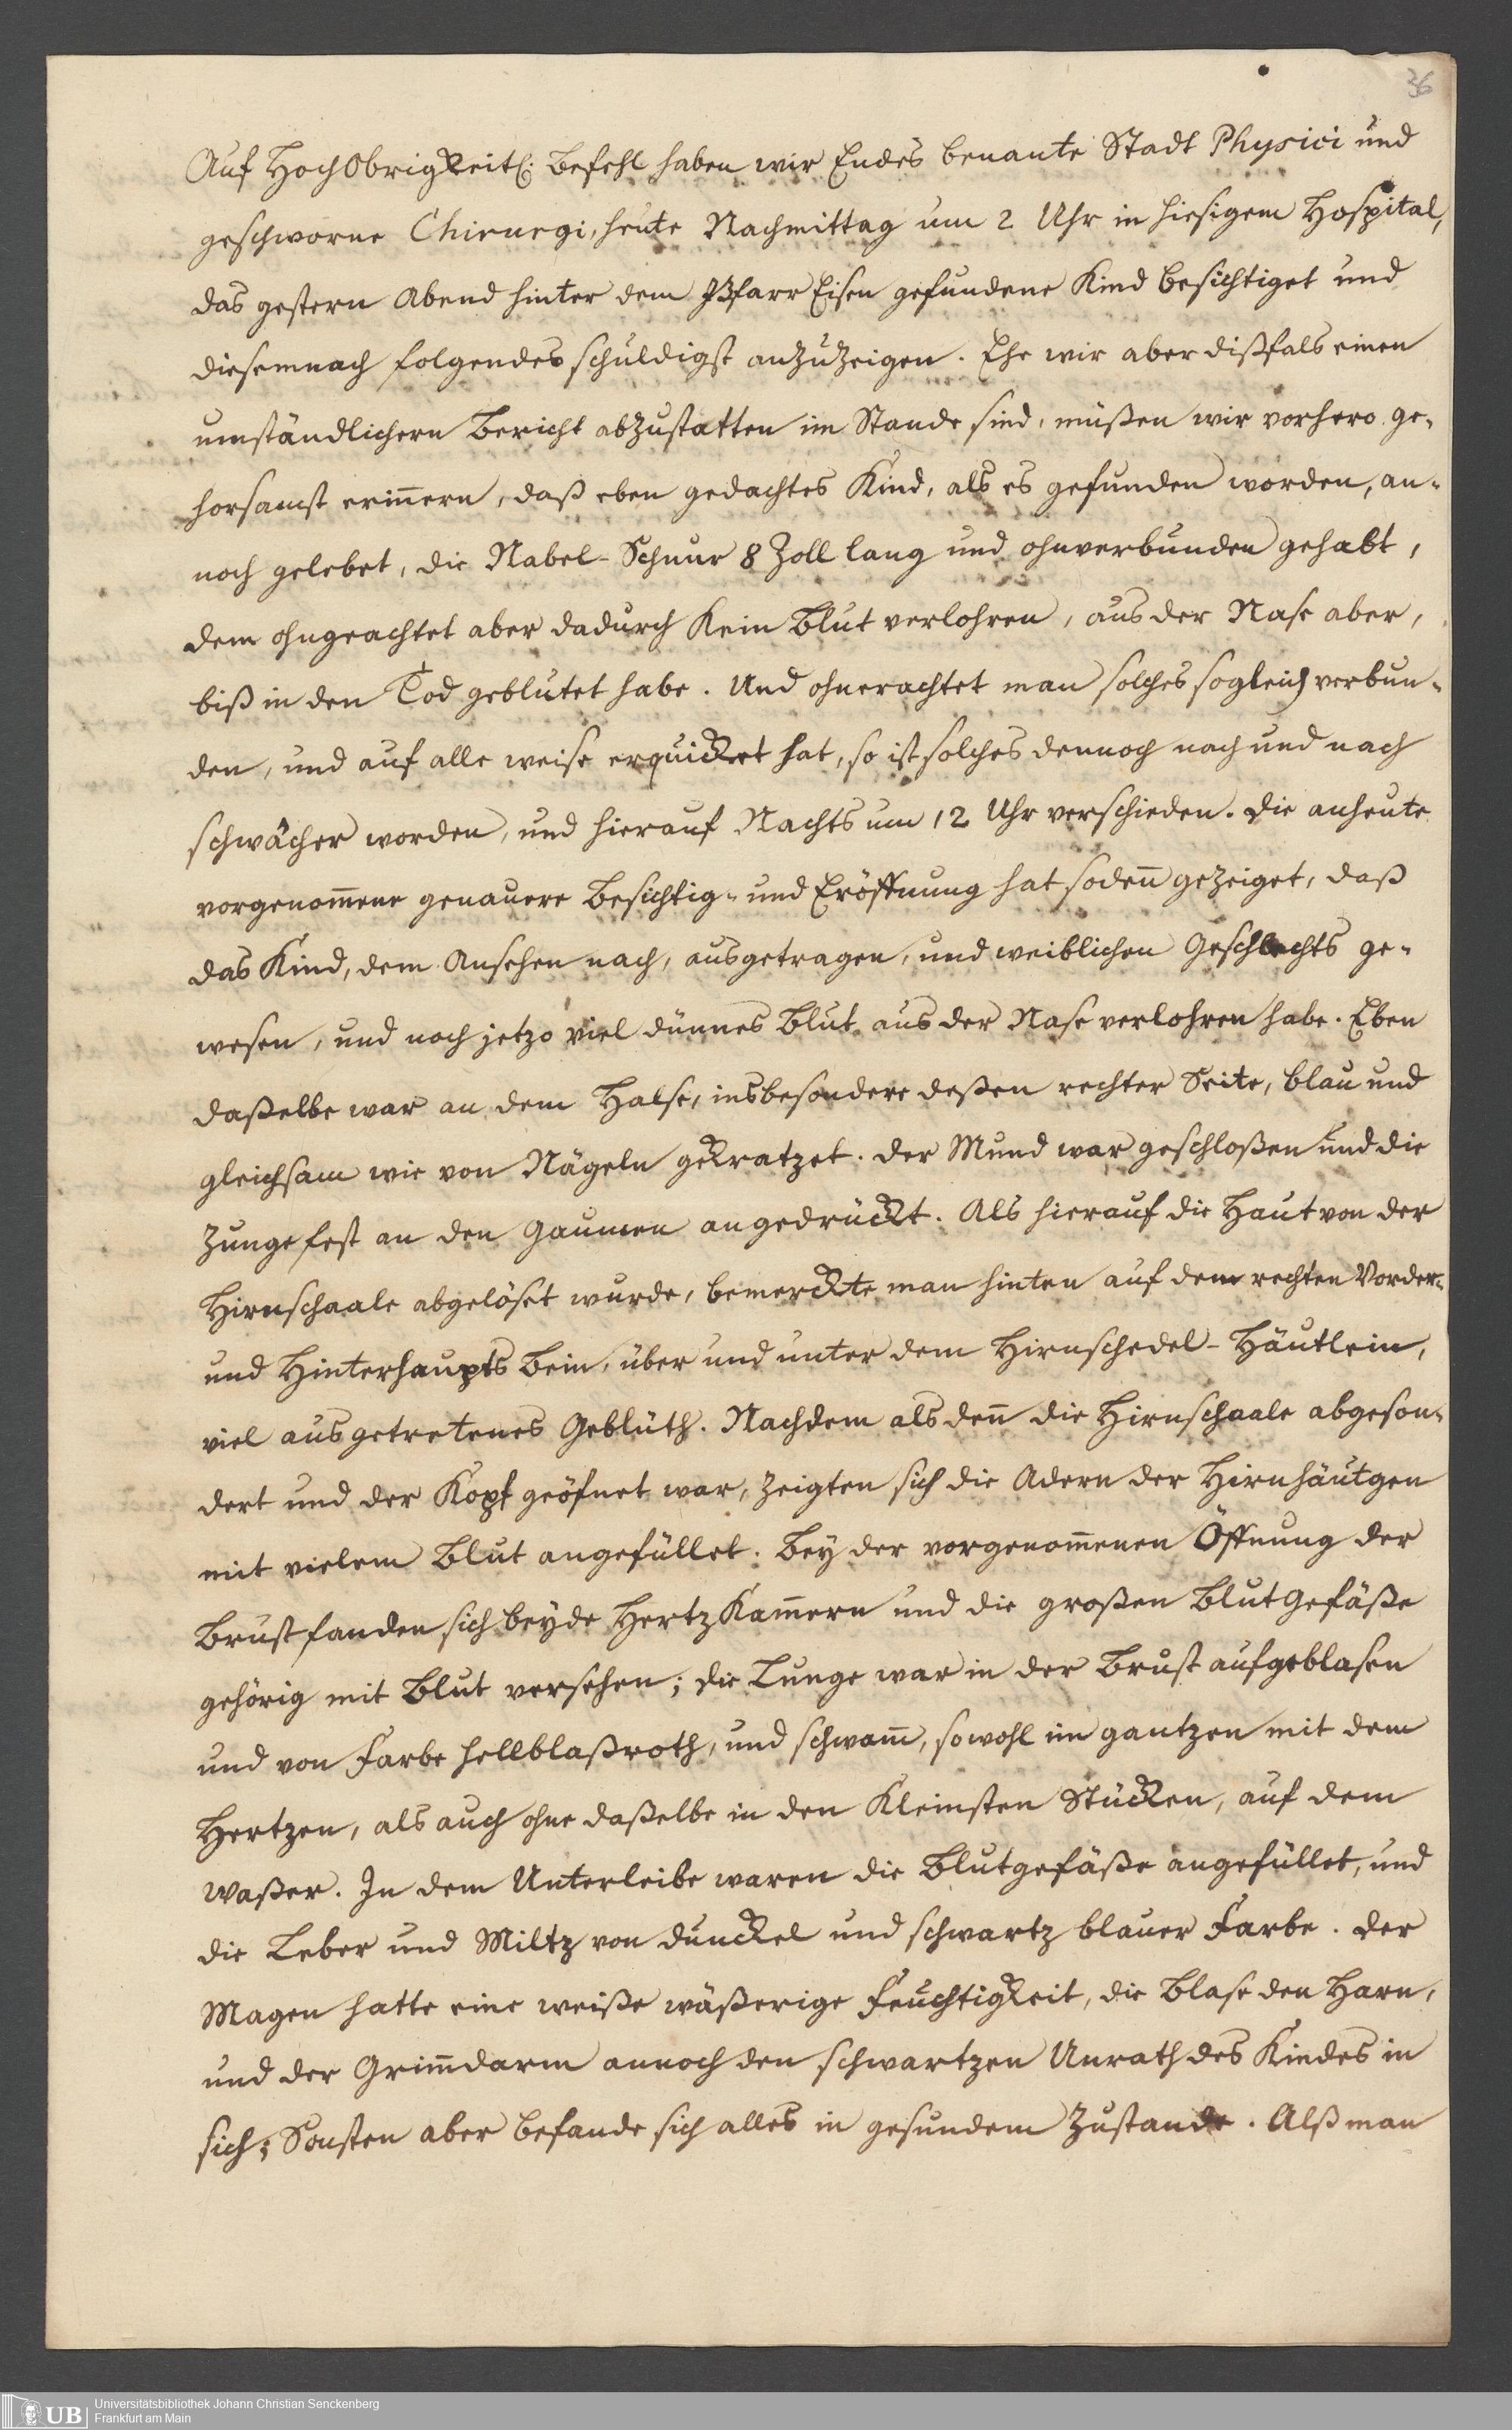 36
Auf HochObrigkeitl: Befehl haben wir Endes benante Stadt Physici und
geschworne Chirurgi, heute Nachmittag um 2 Uhr in hiesigem Hospital,
das gestern Abend hinter dem Pfarr Eisen gefundene Kind besichtiget und
diesemnach folgendes schuldigst anzuzeigen. Ehe wir aber dißfals einen
umständlichern Bericht abzustatten im Stande sind, müßen wir vorhero ge-
horsamst erin̄ern, daß eben gedachtes Kind, als es gefunden worden, an-
noch gelebet, die Nabel-Schnur 8 Zoll lang und ohnverbunden gehabt,
dem ohngeachtet aber dadurch kein Blut verlohren, aus der Nase aber,
biß in den Tod geblutet habe. Und ohnerachtet man solches sogleich verbun-
den, und auf alle weise erquicket hat, so ist solches dennoch nach und nach
schwächer worden, und hierauf Nachts um 12 Uhr verschieden. Die anheute
vorgenom̄ene genauere Besichtig- und Eröffnung hat soden̄ gezeiget, daß
das Kind, dem Ansehen nach, ausgetragen, und weiblichen Geschlechts ge-
wesen, und noch jetzo viel dünnes Blut aus der Nase verlohren habe. Eben
daßelbe war an dem Halse, insbesondere deßen rechter Seite, blau und
gleichsam wie von Nägeln gekratzet. Der Mund war geschloßen und die
Zunge fest an den Gaumen angedrückt. Als hierauf die Haut von der
Hirnschaale abgelöset wurde, bemerckte man hinten auf dem rechten Vorder-
und Hinterhaupts Bein, über und unter dem Hirnschedel-Häutlein,
viel ausgetretenes Geblüth. Nachdem als den̄ die Hirnschaale abgeson-
dert und der Kopf geöfnet war, zeigten sich die Adern der Hirnhäutgen
mit vielem Blut angefüllet. Bey der vorgenom̄enen Öffnung der
Brust fanden sich beyde Hertz Kam̄ern und die großen Blut Gefäße
gehörig mit Blut versehen; die Lunge war in der Brust aufgeblasen
und von Farbe hellblaßroth, und schwam̄, sowohl im gantzen mit dem
Hertzen, als auch ohne daßelbe in den kleinsten Stücken, auf dem
Waßer. In dem Unterleibe waren die Blutgefäße angefüllet, und
die Leber und Miltz von dunckel und schwartz blauer Farbe. Der
Magen hatte eine weiße wäßerige Feuchtigkeit, die Blase den Harn,
und der Grim̄darm annoch den schwartzen Unrath des Kindes in
sich; Sonsten aber befande sich alles in gesundem Zustande. Alß man
UB
Universitätsbibliothek Johann Christian Senckenberg
Frankfurt am Main